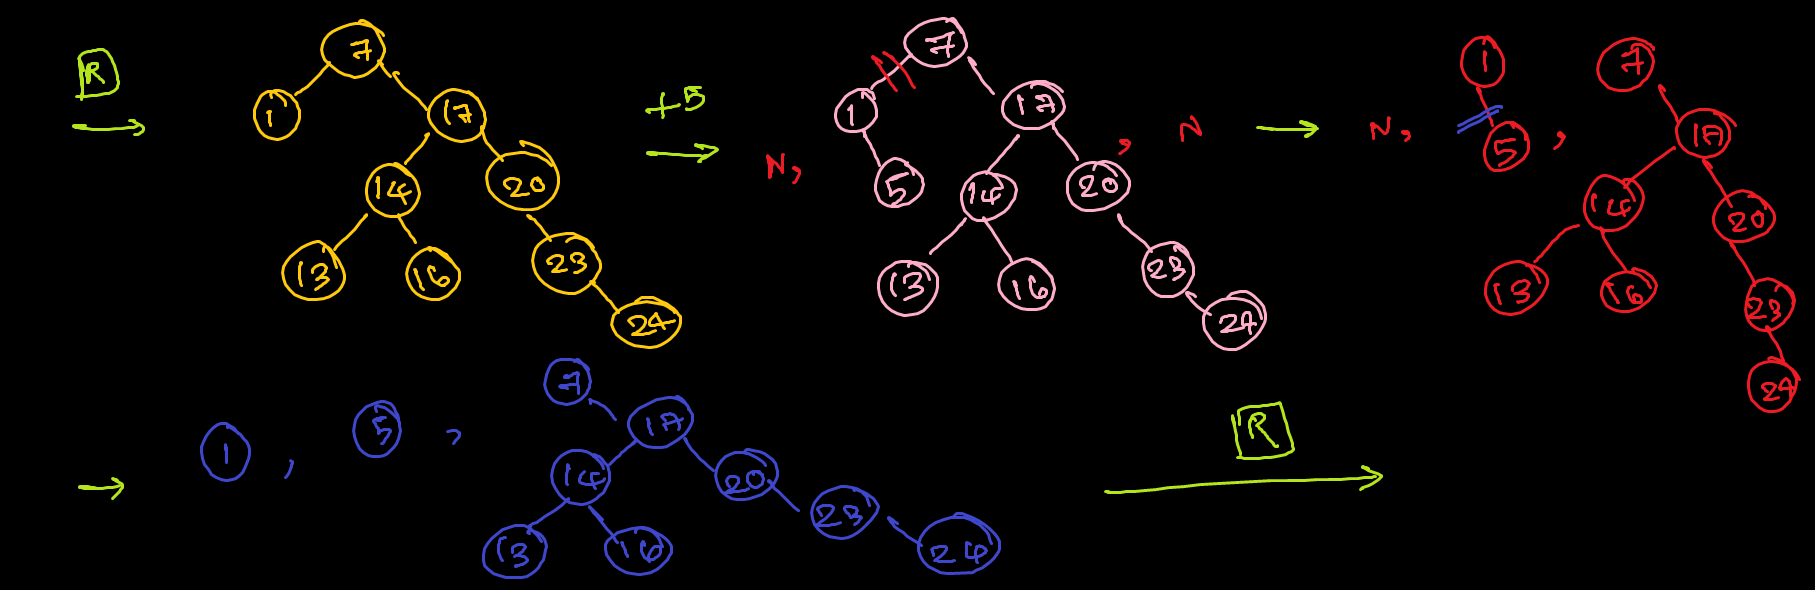 R
7
1 17
14 20
13 16 23
24
+5
N,
7
1 17
5 14 20 , N
13 16 23
24
N, 1
5 , 7
17
14 20
13 16 23
24
1 , 5 , 7
17
14 20
13 16 23
24
R